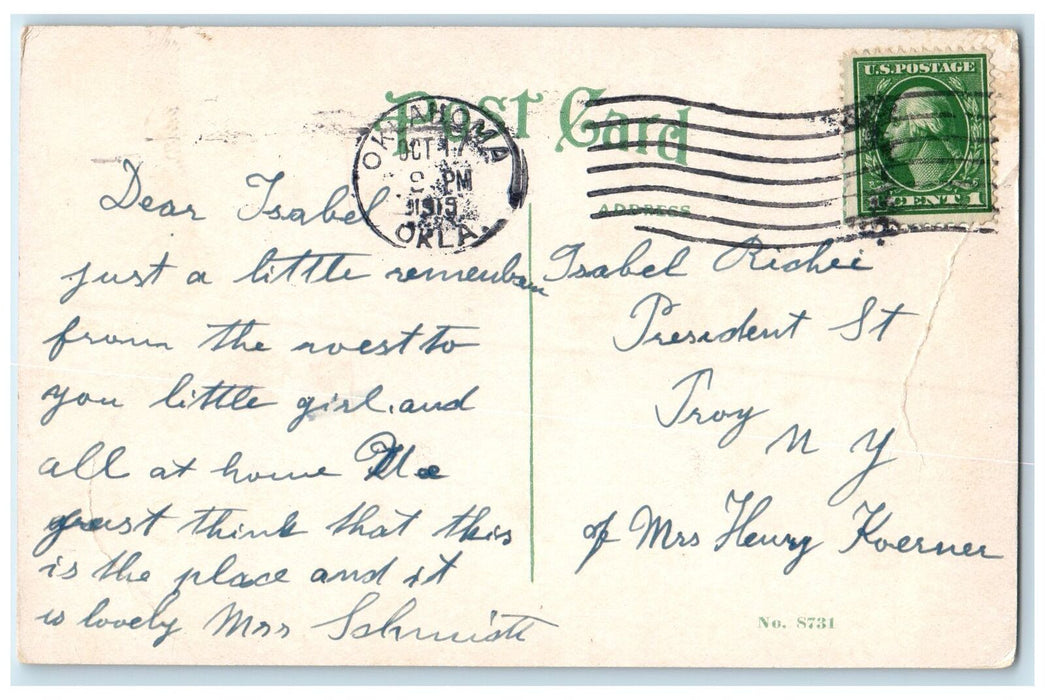 Post Card
U.S. POSTAGE
1 CENT 1
OKLAHOMA
OCT 17
PM
1915
OKLA.
ADDRESS
Dear Isabel
just a little remembran
from the west to
you little girl. and
all at home
just think that this
is the place and it
is lovely Mrs Schmidt
Isabel Richei
President St
Troy
N Y
of Mrs Henry Koerner
No. 8731